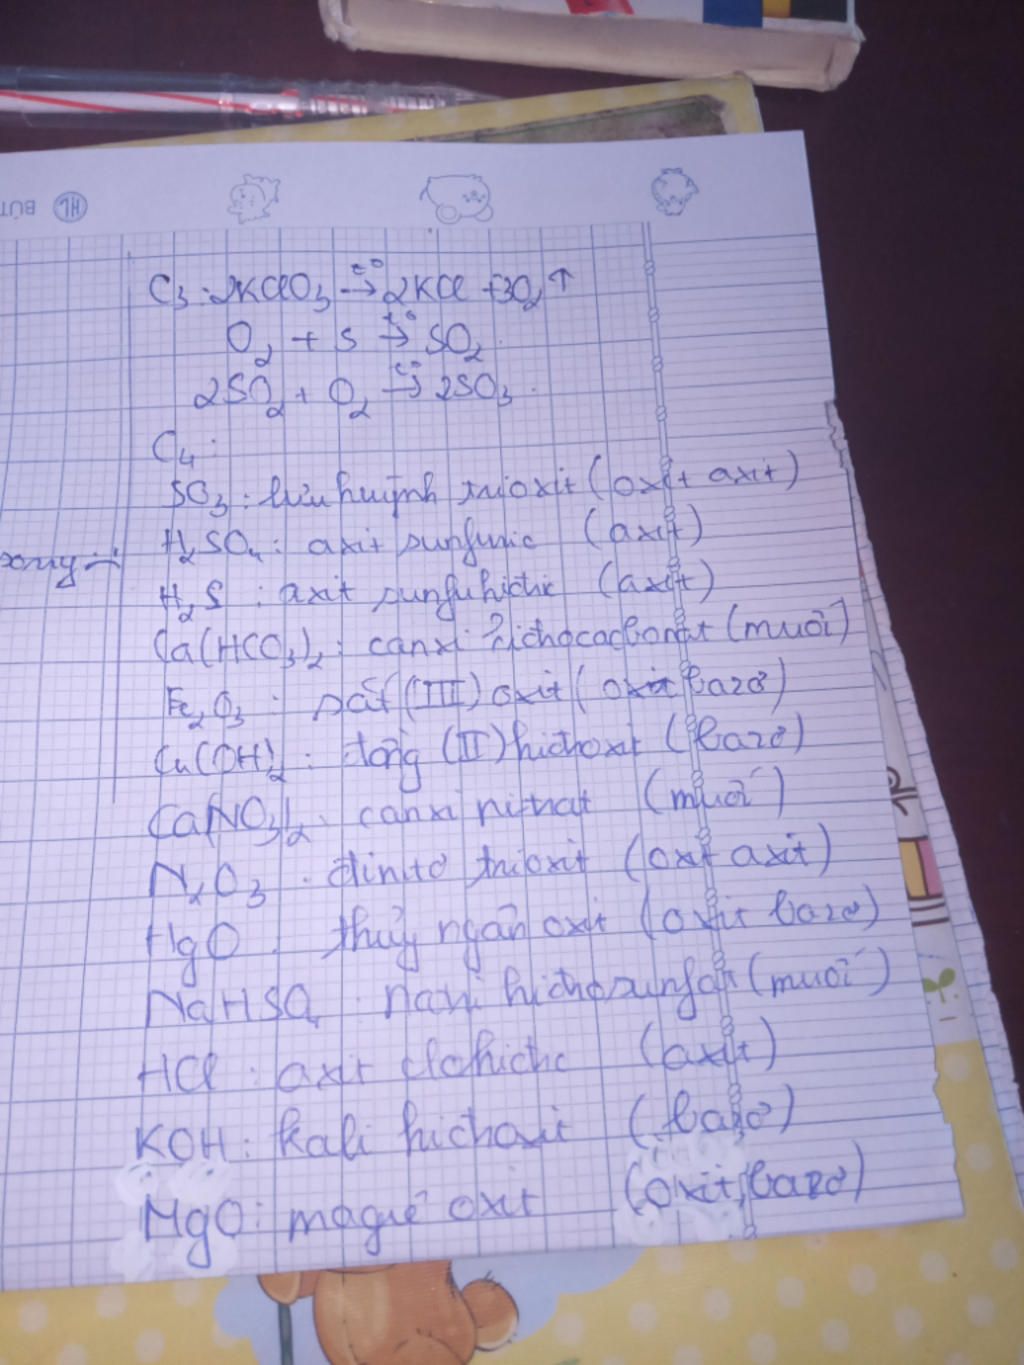 HL BÚT
C3: 2KClO3 t°→ 2KCl + 3O2 ↑
O2 + S t°→ SO2.
2SO2 + O2 t°→ 2SO3.
C4:
SO3: lưu huỳnh trioxit (oxit axit)
H2SO4: axit sunfuric (axit)
H2S: axit sunfuhiđric (axit)
Ca(HCO3)2: canxi hiđrocacbonat (muối)
Fe2O3: sắt (III) oxit (oxit bazơ)
Cu(OH)2: đồng (II) hiđroxit (bazơ)
Ca(NO3)2: canxi nitrat (muối)
N2O3: đinitơ trioxit (oxit axit)
HgO: thủy ngân oxit (oxit bazơ)
NaHSO4: natri hiđrosunfat (muối)
HCl: axit clohiđric (axit)
KOH: kali hiđroxit (bazơ)
MgO: magiê oxit (oxit bazơ)